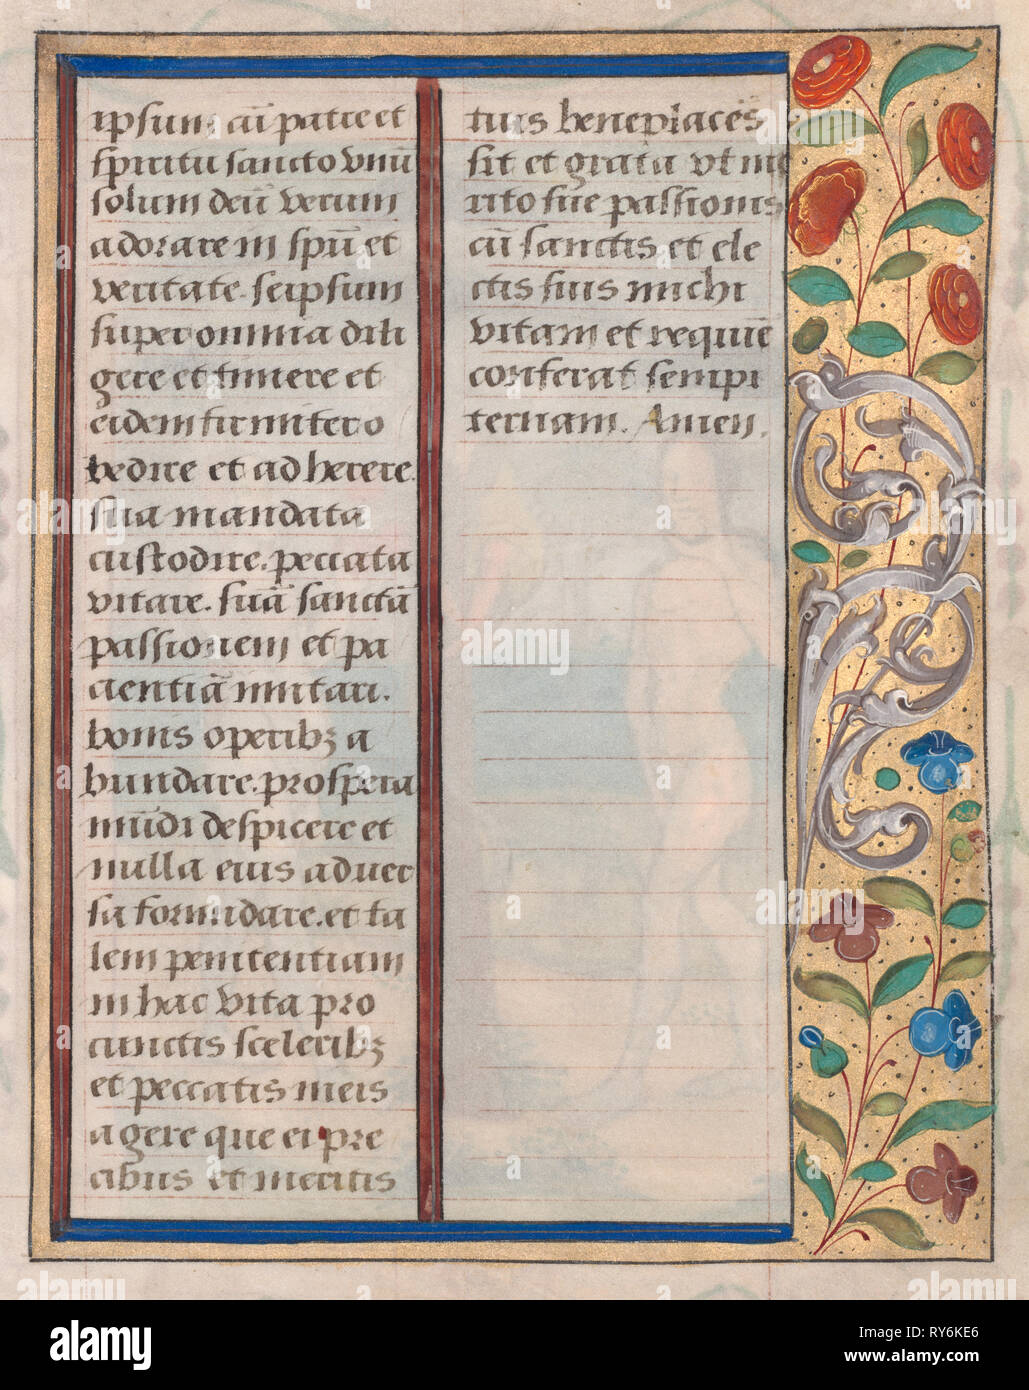 ipsum cū patre et
spiritu sancto vnū
solum deū verum
adorare in spū et
veritate. seipsum
super omnia dili
gere et timere et
eidem firmiter o
bedire et adherere.
sua mandata
custodire. peccata
vitare. suā sanctā
passionem et pa
cientiā imitari.
bonis operibꝫ a
bundare. prospera
mūdi despicere et
nulla eius aduer
sa formidare. et ta
lem penitentiam
in hac vita pro
cunctis sceleribꝫ
et peccatis meis
agere que ei pre
cibus et meritis
tuis beneplacēs
sit et grata vt me
rito sue passionis
cū sanctis et ele
ctis suis michi
vitam et requiē
conferat sempi
ternam. Amen.
alamy
alamy
Image ID: RY6KE6
www.alamy.com